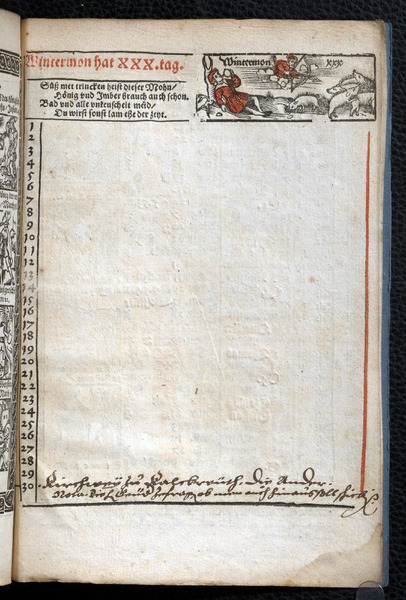 Wintermon hat XXX.tag.
Wintermon XXX
Süß met trincken heist dieser Mohn/
Hönig vnd Imber brauch auch schon.
Bad vnd alle vnkeuscheit meid/
Du wirst sonst lam ehe der zeyt.
1
2
3
4
5
6
7
8
9
10
11
12
13
14
15
16
17
18
19
20
21
22
23
24
25
26
27
28
29
30